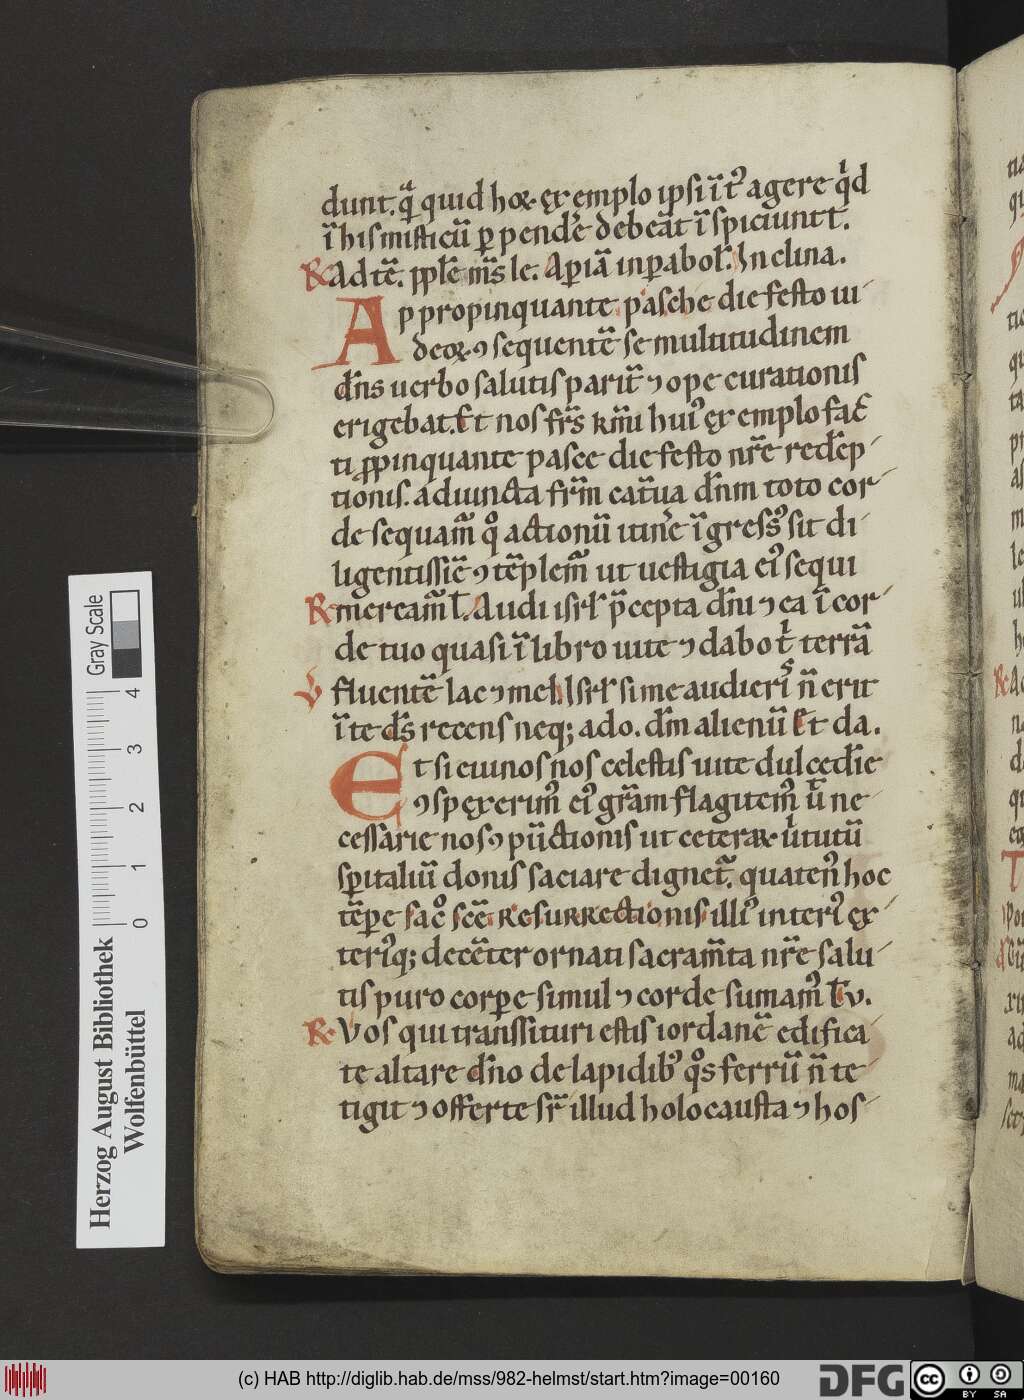 dunt. qͣ quid hoꝝ exemplo ipsi ī tͥ agere qͥd
ī his misticū ꝑpendeͬ debeāt īspiciunt t̄.
℟ Ad tē. ꝓpͪe m̄s le. Aꝑiā inꝑaboł. Inclina.
Appropinquante pasche die festo ui
deoꝝ ⁊ sequentē se multitudinem
dn̄s uerbo salutis parit̄ ⁊ ope curationis
erigebat. Et nos fr̄s km̄i huiꝰ exemplo fac̄
ti ꝓpinquante pasce die festo nr̄e redēp
tionis. adiuncta fr̄m cat̄ua dn̄m toto cor
de sequam̄ qͦ actionū itin̄e īgressꝰ sit di
ligentissīe ⁊ tēplem̄ ut uestigia eiꝰ sequi
℟ meream̄ t̄. Audi isrł p̄cepta dn̄i ⁊ ea ī cor
de tuo quasi ī libro uite ⁊ dabo tͥ terrā
℣ fluentē lac ⁊ mel. Isrł si me audierꝭ n̄ erit
ī te ds̄ recens neq; ado. dm̄ alienū Et da.
Et si euinos nos celestis uite dulcedīe
⁊spexerimꝰ eiꝰ gr̄am flagitemꝰ ut̄ ne
cessarie nos ⁊pūctionis ut ceteraꝝ uͥtutū
sp̄italiū donis saciare dignet᷑. quaten̄ hoc
tēꝑe sac̄ scē Resurrectionis illiꝰ interiꝰ ex
teriꝰq; decēter ornati sacram̄ta nr̄e salu
tis puro corꝑe simul ⁊ corde sumamꝰ t̄ v.
℟ Vos qui transsituri estis iordanē edifica
te altare dn̄o de lapidibꝰ qͦs ferrū n̄ te
tigit ⁊ offerte sr̄ illud holocausta ⁊ hos
Gray Scale
4
3
2
1
0
Herzog August Bibliothek
Wolfenbüttel
(c) HAB http://diglib.hab.de/mss/982-helmst/start.htm?image=00160
DFG
cc
BY SA